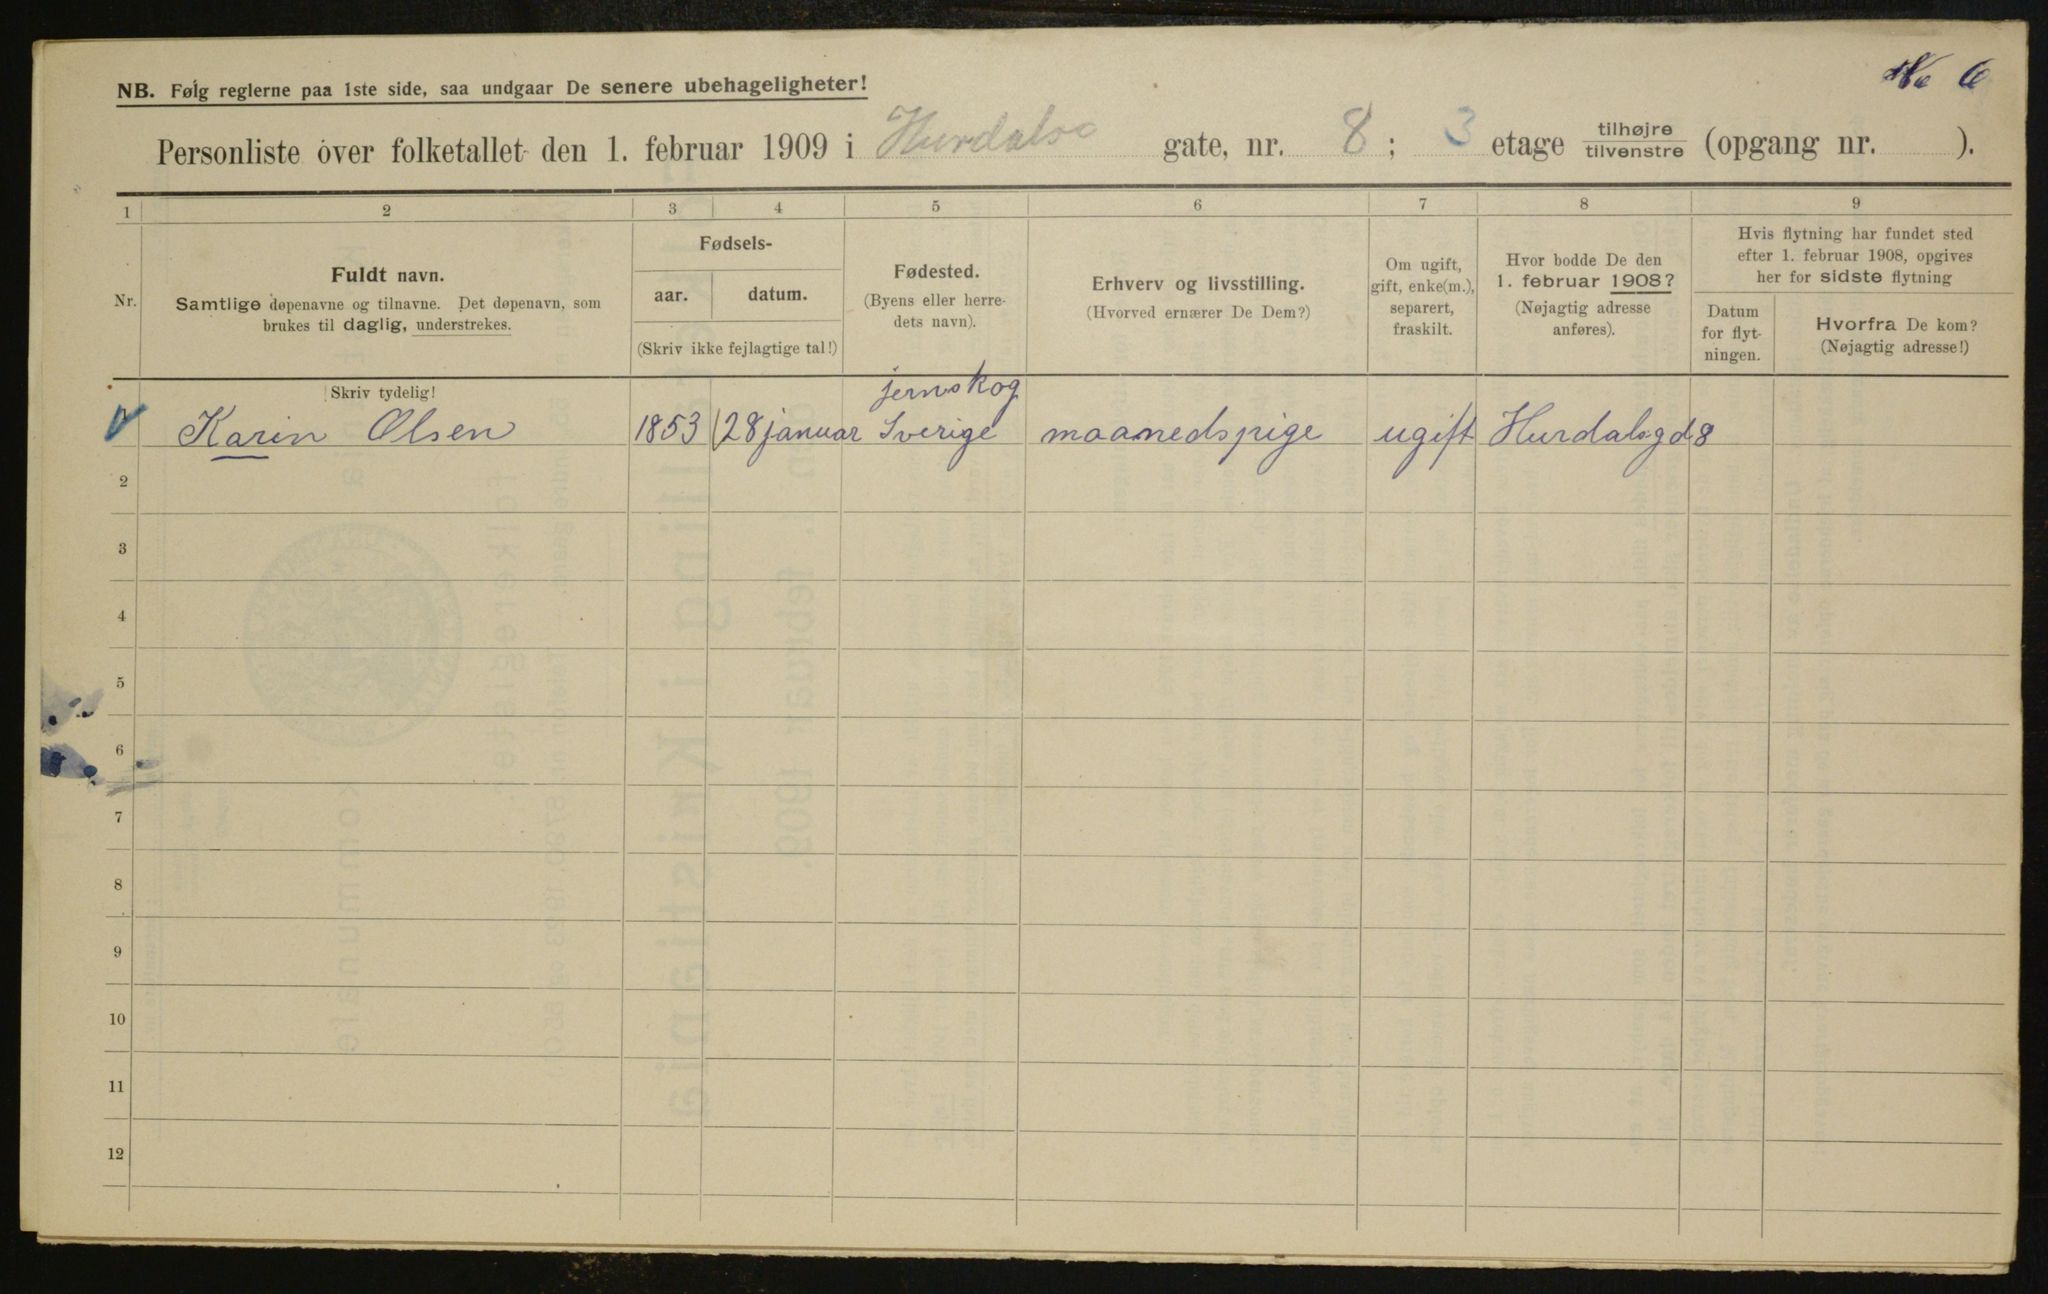 No 6
NB. Følg reglerne paa 1ste side, saa undgaar De senere ubehageligheter!
Personliste over folketallet den 1. februar 1909 i Hurdals gate, nr. 8; 3 etage tilhøjre tilvenstre (opgang nr. ).
1 2 3 4 5 6 7 8 9
Nr.
Fuldt navn.
Samtlige døpenavne og tilnavne. Det døpenavn, som
brukes til daglig, understrekes.
Fødsels-
aar. datum.
(Skriv ikke fejlagtige tal!)
Fødested.
(Byens eller herre-
dets navn).
Erhverv og livsstilling.
(Hvorved ernærer De Dem?)
Om ugift,
gift, enke(m.),
separert,
fraskilt.
Hvor bodde De den
1. februar 1908?
(Nøjagtig adresse
anføres).
Hvis flytning har fundet sted
efter 1. februar 1908, opgives
her for sidste flytning
Datum
for flyt-
ningen.
Hvorfra De kom?
(Nøjagtig adresse!)
Skriv tydelig!
jernskog
Karin Olsen 1853 28 januar Sverige maanedspige ugift Hurdalsgd 8
2
3
4
5
6
7
8
9
10
11
12